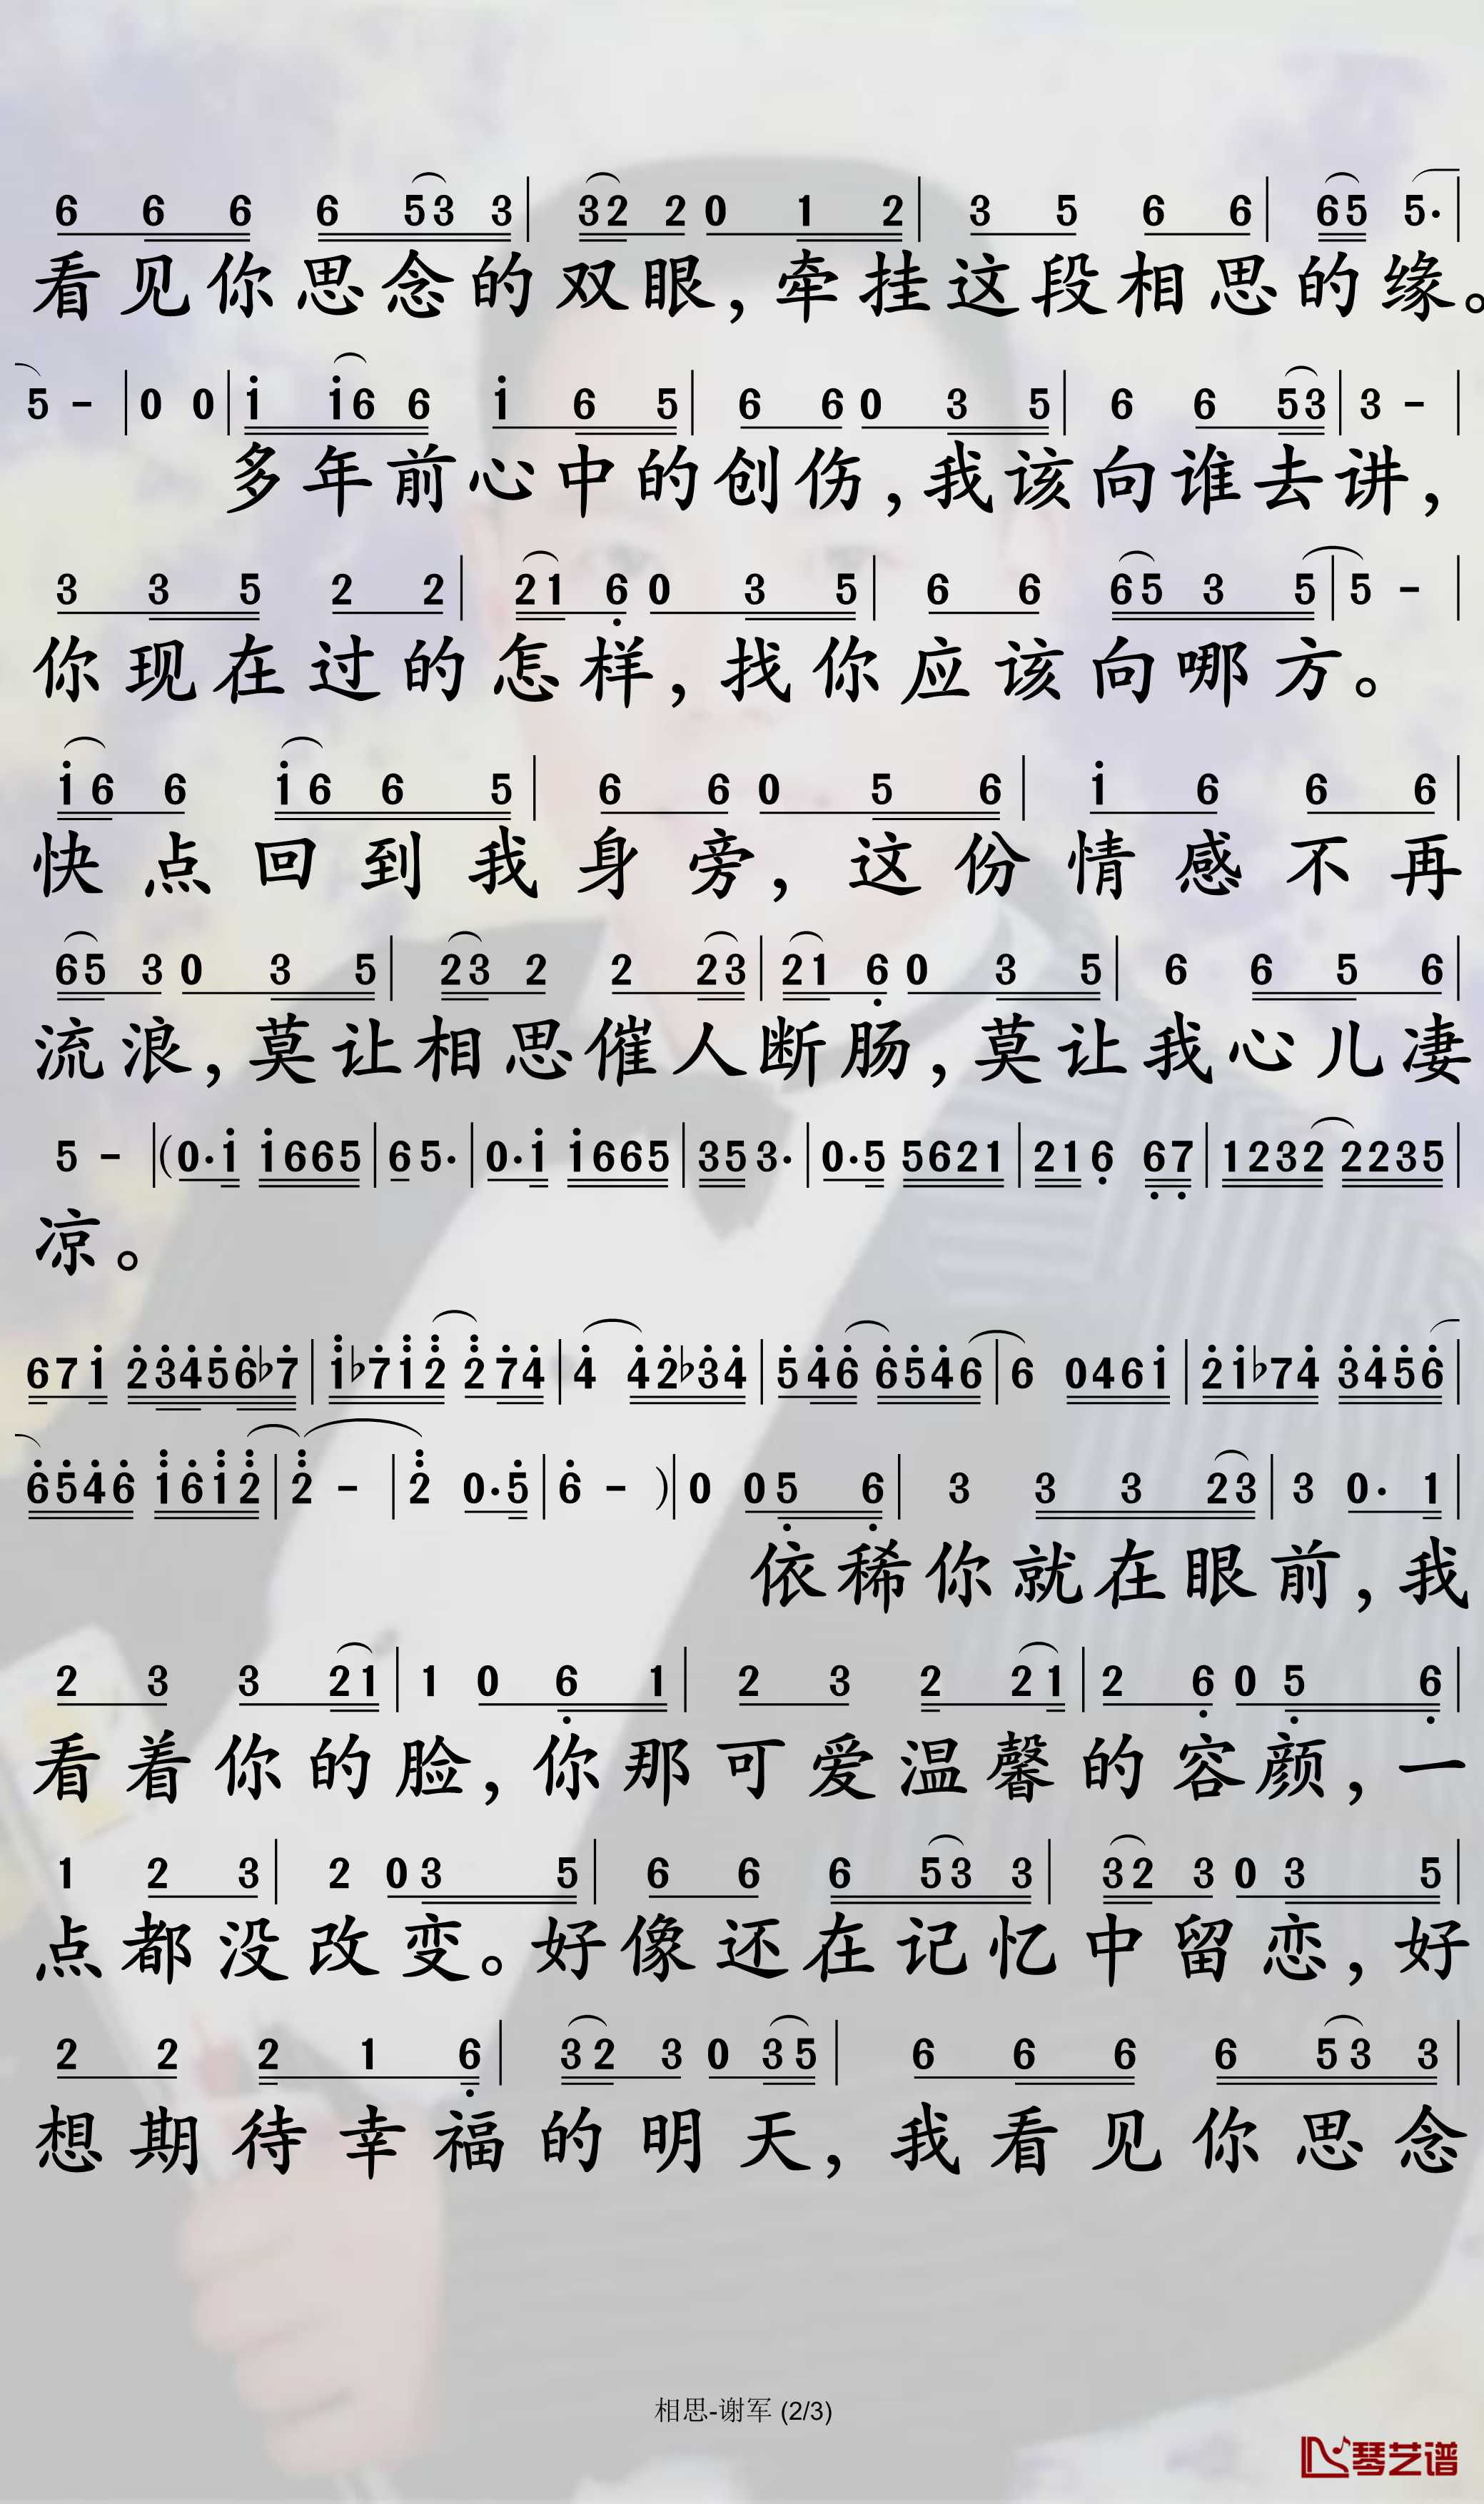 6 6 6 6 5 3 3 | 3 2 2 0 1 2 | 3 5 6 6 | 6 5 5· |
看见你思念的双眼，牵挂这段相思的缘。
5 - | 0 0 | i i 6 6 i 6 5 | 6 6 0 3 5 | 6 6 5 3 | 3 - |
多年前心中的创伤，我该向谁去讲，
3 3 5 2 2 | 2 1 6 0 3 5 | 6 6 6 5 3 5 | 5 - |
你现在过的怎样，找你应该向哪方。
i 6 6 i 6 6 5 | 6 6 0 5 6 | i 6 6 6 |
快点回到我身旁，这份情感不再
6 5 3 0 3 5 | 2 3 2 2 2 3 | 2 1 6 0 3 5 | 6 6 5 6 |
流浪，莫让相思催人断肠，莫让我心儿凄
5 - | (0·i i665 | 6 5· | 0·i i665 | 35 3· | 0·5 5621 | 21 6 67 | 1232 2235 |
凉。
67i 23456♭7 | i♭7i2 274 | 4 42♭34 | 546 6546 | 6 046i | 2i♭74 3456 |
6546 i6i2 | 2 - | 2 0·5 | 6 - ) | 0 0 5 6 | 3 3 3 2 3 | 3 0· 1 |
依稀你就在眼前，我
2 3 3 2 1 | 1 0 6 1 | 2 3 2 2 1 | 2 6 0 5 6 |
看着你的脸，你那可爱温馨的容颜，一
1 2 3 | 2 0 3 5 | 6 6 6 5 3 3 | 3 2 3 0 3 5 |
点都没改变。好像还在记忆中留恋，好
2 2 2 1 6 | 3 2 3 0 3 5 | 6 6 6 6 5 3 3 |
想期待幸福的明天，我看见你思念
相思-谢军 (2/3)
琴艺谱